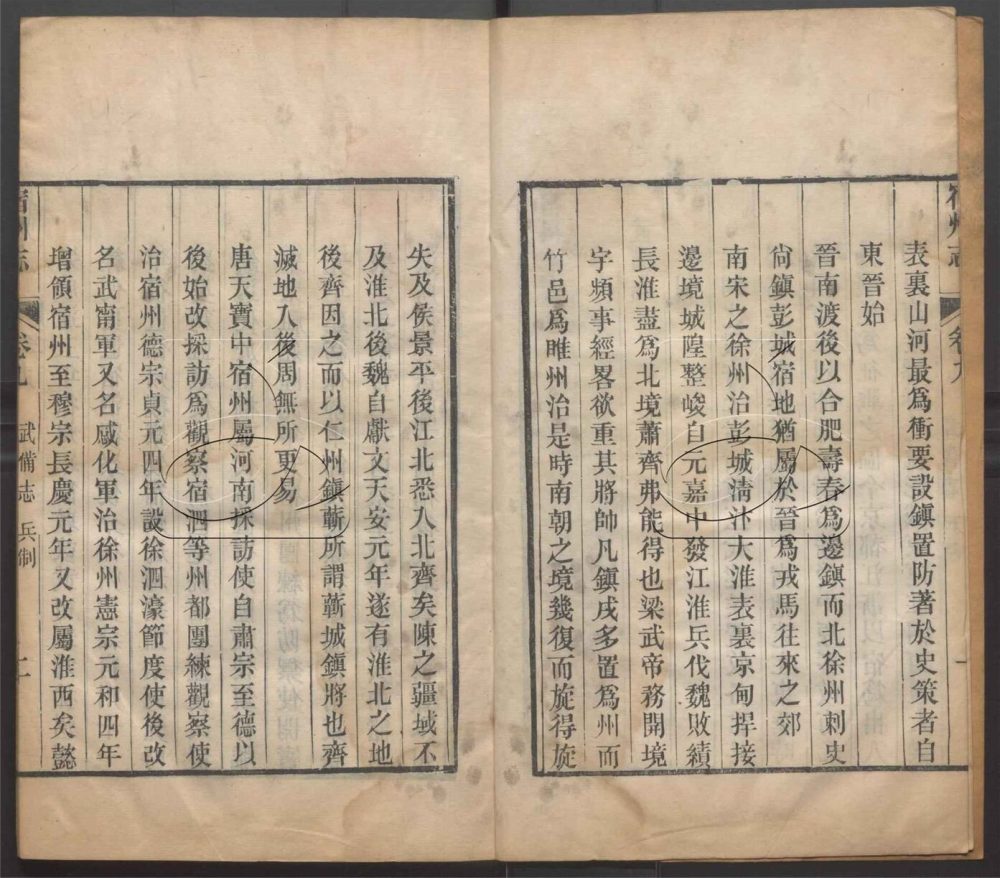 宿州志 卷九 一
表裏山河最爲衝要設鎭置防著於史策者自
東晉始
晉南渡後以合肥壽春爲邊鎭而北徐州刺史
尙鎭彭城宿地猶屬於晉爲戎馬往來之郊
南宋之徐州治彭城淸汴大淮表裏京甸捍接
邊境城隍整峻自元嘉中發江淮兵伐魏敗績
長淮盡爲北境蕭齊弗能得也梁武帝務開境
宇頻事經畧欲重其將帥凡鎭戍多置爲州而
竹邑爲睢州治是時南朝之境幾復而旋得旋
失及侯景平後江北悉入北齊矣陳之疆域不
及淮北後魏自獻文天安元年遂有淮北之地
後齊因之而以仁州鎭蘄所謂蘄城鎭將也齊
滅地入後周無所更易
唐天寶中宿州屬河南採訪使自肅宗至德以
後始改採訪爲觀察宿泗等州都團練觀察使
治宿州德宗貞元四年設徐泗濠節度使後改
名武甯軍又名感化軍治徐州憲宗元和四年
增領宿州至穆宗長慶元年又改屬淮西矣懿
宿州志 卷九 武備志 兵制 二